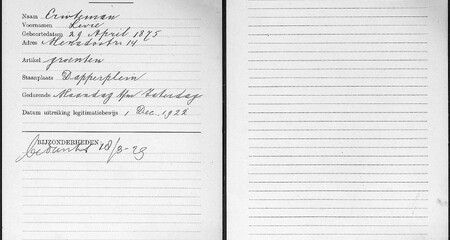 Naam Creveman
Voornamen Levie
Geboortedatum 29 April 1875
Adres 14
Artikel groenten
Staanplaats Dapperplein
Gedurende Maandag t/m Zaterdag
Datum uitreiking legitimatiebewijs 1 Dec. 1922
BIJZONDERHEDEN:
bedankt 18/3-29